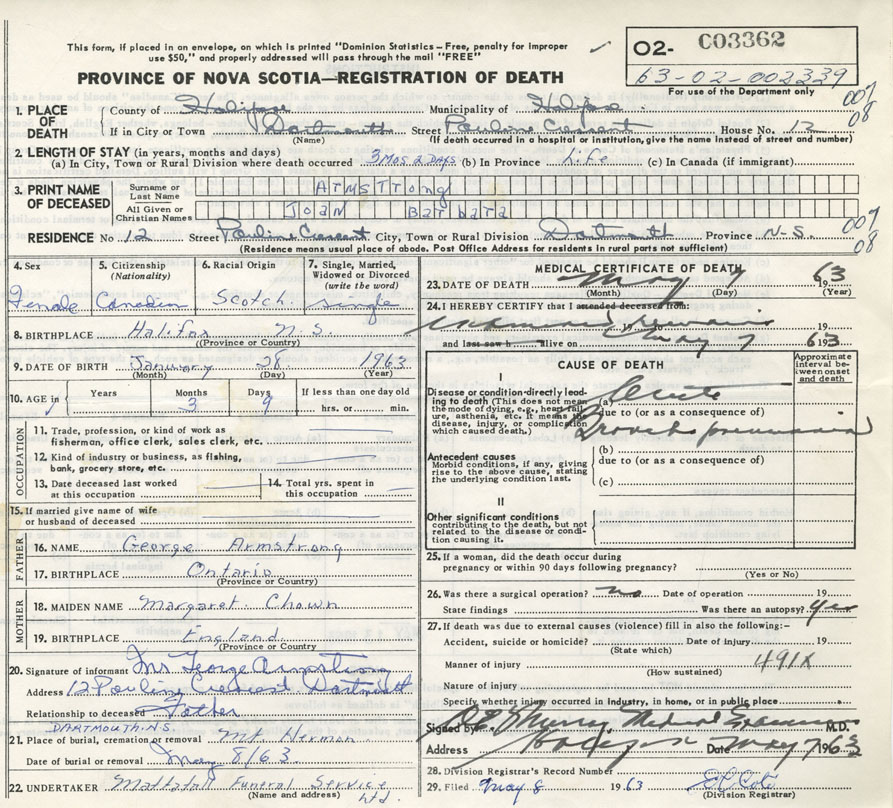 This form, if placed in an envelope, on which is printed "Dominion Statistics – Free, penalty for improper
use $50," and properly addressed will pass through the mail "FREE"
PROVINCE OF NOVA SCOTIA—REGISTRATION OF DEATH
02- C03362
63-02-002339
For use of the Department only
1. PLACE OF DEATH
County of Halifax Municipality of Halifax 007
If in City or Town Dartmouth Street Pauline Crescent House No. 12 08
(Name) (If death occurred in a hospital or institution, give the name instead of street and number)
2. LENGTH OF STAY (in years, months and days)
(a) In City, Town or Rural Division where death occurred 3 Mos 2 Days (b) In Province Life (c) In Canada (if immigrant)
3. PRINT NAME OF DECEASED
Surname or Last Name Armstrong
All Given or Christian Names Joan Barbara
RESIDENCE No 12 Street Pauline Crescent City, Town or Rural Division Dartmouth Province N-S. 007
(Residence means usual place of abode. Post Office Address for residents in rural parts not sufficient) 08
4. Sex 5. Citizenship (Nationality) 6. Racial Origin 7. Single, Married, Widowed or Divorced (write the word)
Female Canadian Scotch. single
8. BIRTHPLACE Halifax N.S.
(Province or Country)
9. DATE OF BIRTH January 28 1963
(Month) (Day) (Year)
10. AGE in Years Months Days If less than one day old
3 9 hrs. or min.
OCCUPATION
11. Trade, profession, or kind of work as
fisherman, office clerk, sales clerk, etc.
12. Kind of industry or business, as fishing,
bank, grocery store, etc.
13. Date deceased last worked at this occupation 14. Total yrs. spent in this occupation
15. If married give name of wife
or husband of deceased
FATHER
16. NAME George Armstrong
17. BIRTHPLACE Ontario
(Province or Country)
MOTHER
18. MAIDEN NAME Margaret Chown
19. BIRTHPLACE England
(Province or Country)
20. Signature of informant Mrs George Armstrong
Address 12 Pauline Crescent Dartmouth
Relationship to deceased Father
DARTMOUTH N.S.
21. Place of burial, cremation or removal Mt Herman
Date of burial or removal May 8/63
22. UNDERTAKER Mattatall Funeral Service Ltd.
(Name and address)
MEDICAL CERTIFICATE OF DEATH
23. DATE OF DEATH May 7 1963
(Month) (Day) (Year)
24. I HEREBY CERTIFY that I attended deceased from:
examined remains 19
and last saw h alive on May 7 1963
CAUSE OF DEATH
Approximate interval between onset and death
I
Disease or condition directly leading to death (This does not mean the mode of dying, e.g., heart failure, asthenia, etc. It means the disease, injury, or complication which caused death.)
(a) Acute
due to (or as a consequence of)
Bronchopneumonia
Antecedent causes
Morbid conditions, if any, giving rise to the above cause, stating the underlying condition last.
(b)
due to (or as a consequence of)
(c)
II
Other significant conditions
contributing to the death, but not related to the disease or condition causing it.
25. If a woman, did the death occur during
pregnancy or within 90 days following pregnancy?
(Yes or No)
26. Was there a surgical operation? no Date of operation 19
State findings Was there an autopsy? yes
27. If death was due to external causes (violence) fill in also the following:-
Accident, suicide or homicide? Date of injury 19
(State which)
Manner of injury 491X
(How sustained)
Nature of injury
Specify whether injury occurred in industry, in home, or in public place
Signed by Murray Medical Examiner M.D.
Address Halifax Date May 7 1963
28. Division Registrar's Record Number
29. Filed May 8 1963
(Division Registrar)